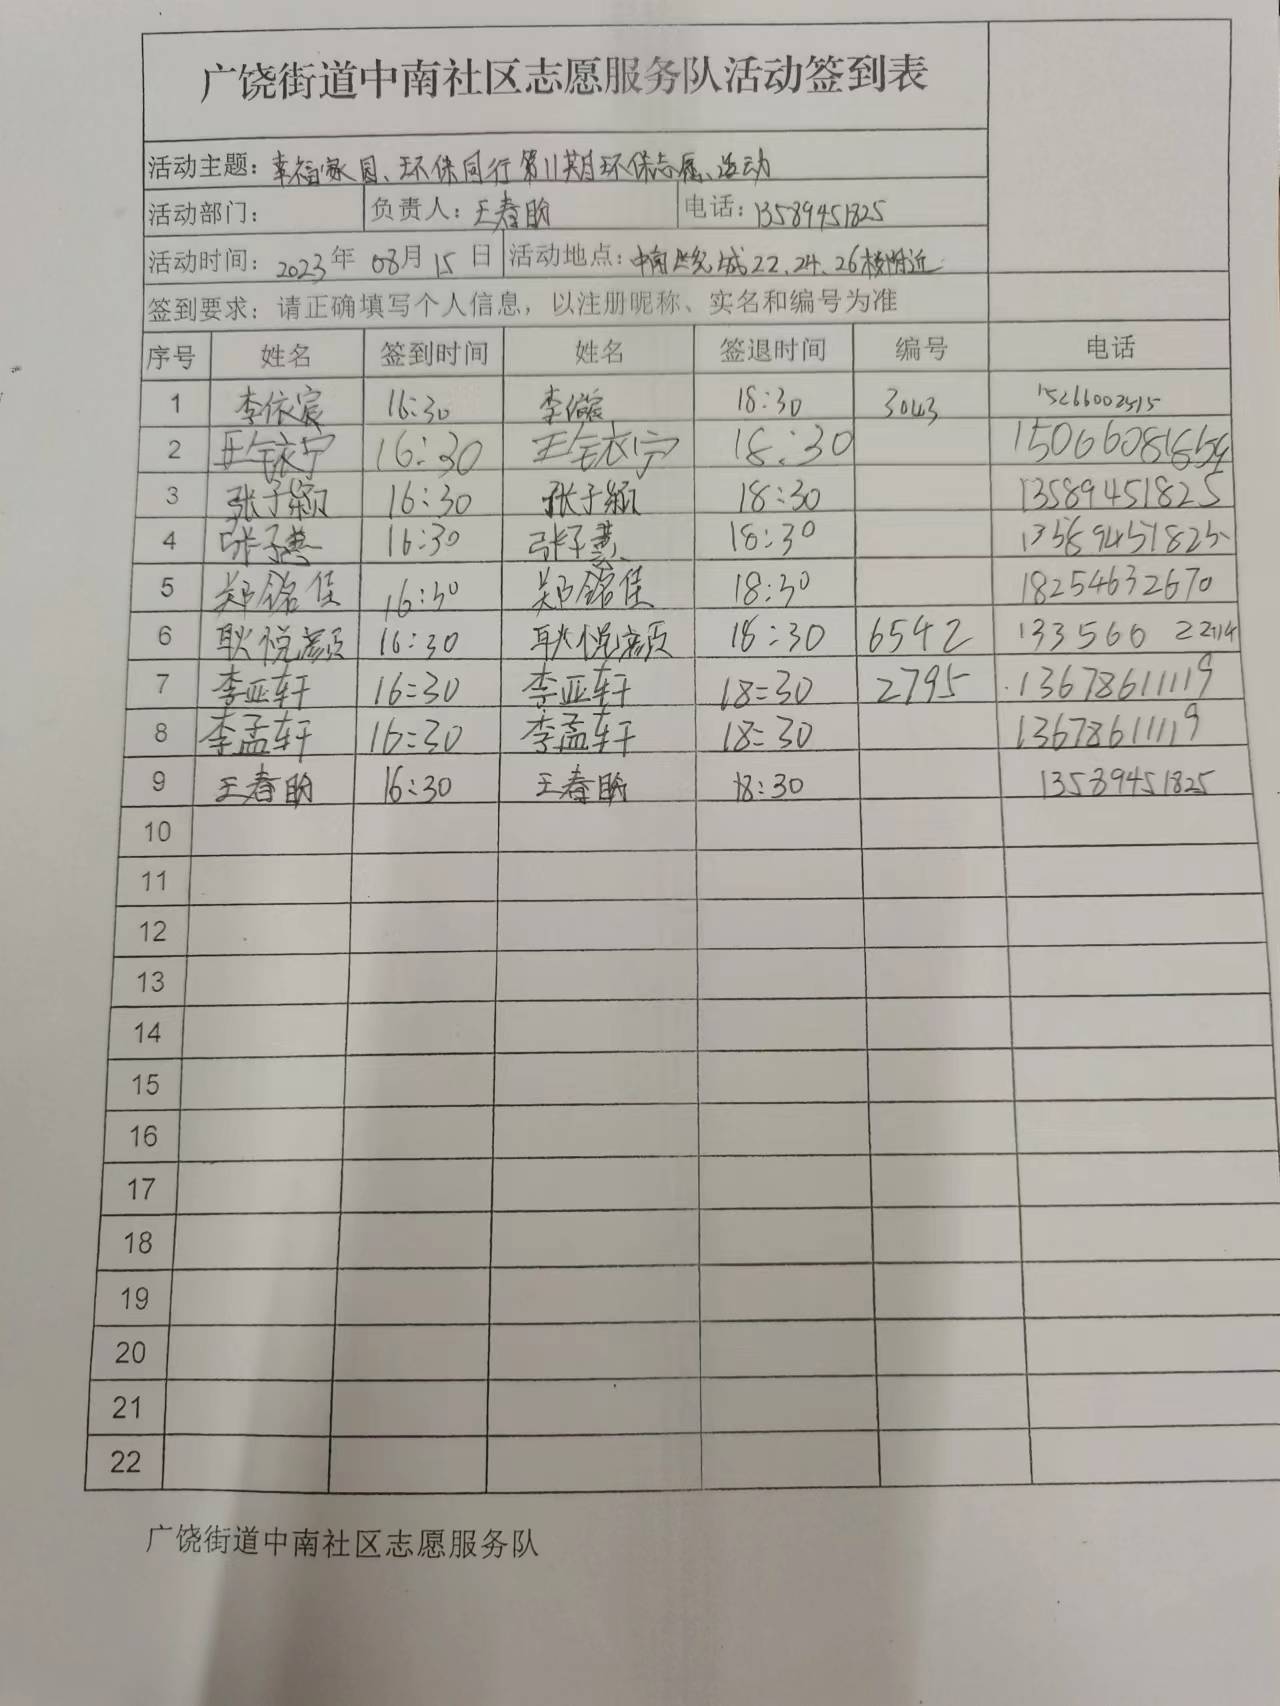 广饶街道中南社区志愿服务队活动签到表
活动主题：幸福家园、环保同行第11期环保志愿活动
活动部门： 负责人：王春盼 电话：13589451825
活动时间：2023年08月15日 活动地点：中南世纪城22、24、26楼附近
签到要求：请正确填写个人信息，以注册昵称、实名和编号为准
序号 姓名 签到时间 姓名 签退时间 编号 电话
1 李依宸 16:30 李依宸 18:30 3043
2 16:30 18:30
3 张子颖 16:30 张子颖 18:30 13589451825
4 张子慧 16:30 张子慧 18:30 13589451825
5 郑铭佳 16:30 郑铭佳 18:30 18254632670
6 耿悦颜 16:30 耿悦颜 18:30 6542 133560
7 李亚轩 16:30 李亚轩 18:30 2795 13678611119
8 李孟轩 16:30 李孟轩 18:30 13678611119
9 王春盼 16:30 王春盼 18:30 13589451825
10
11
12
13
14
15
16
17
18
19
20
21
22
广饶街道中南社区志愿服务队